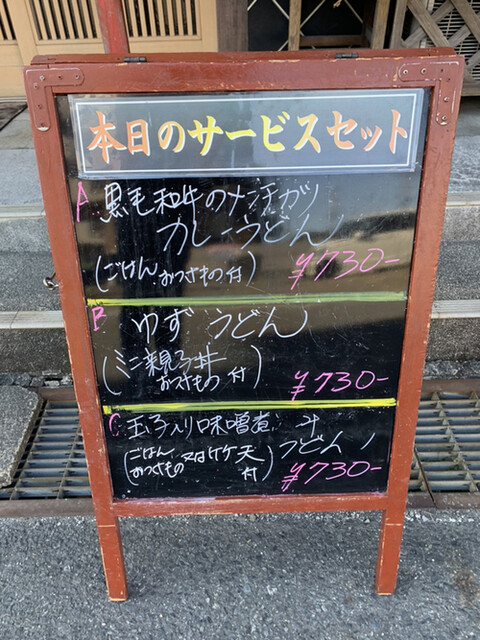 本日のサービスセット
A 黒毛和牛のメンチカツ
カレーうどん
(ごはん おつけもの 付)
¥730-
B ゆず うどん
(ミニ親子丼
おつけもの 付)
¥730-
C 玉子入り味噌煮
うどん
(ごはん
おつけもの 又は 竹天
付)
¥730-